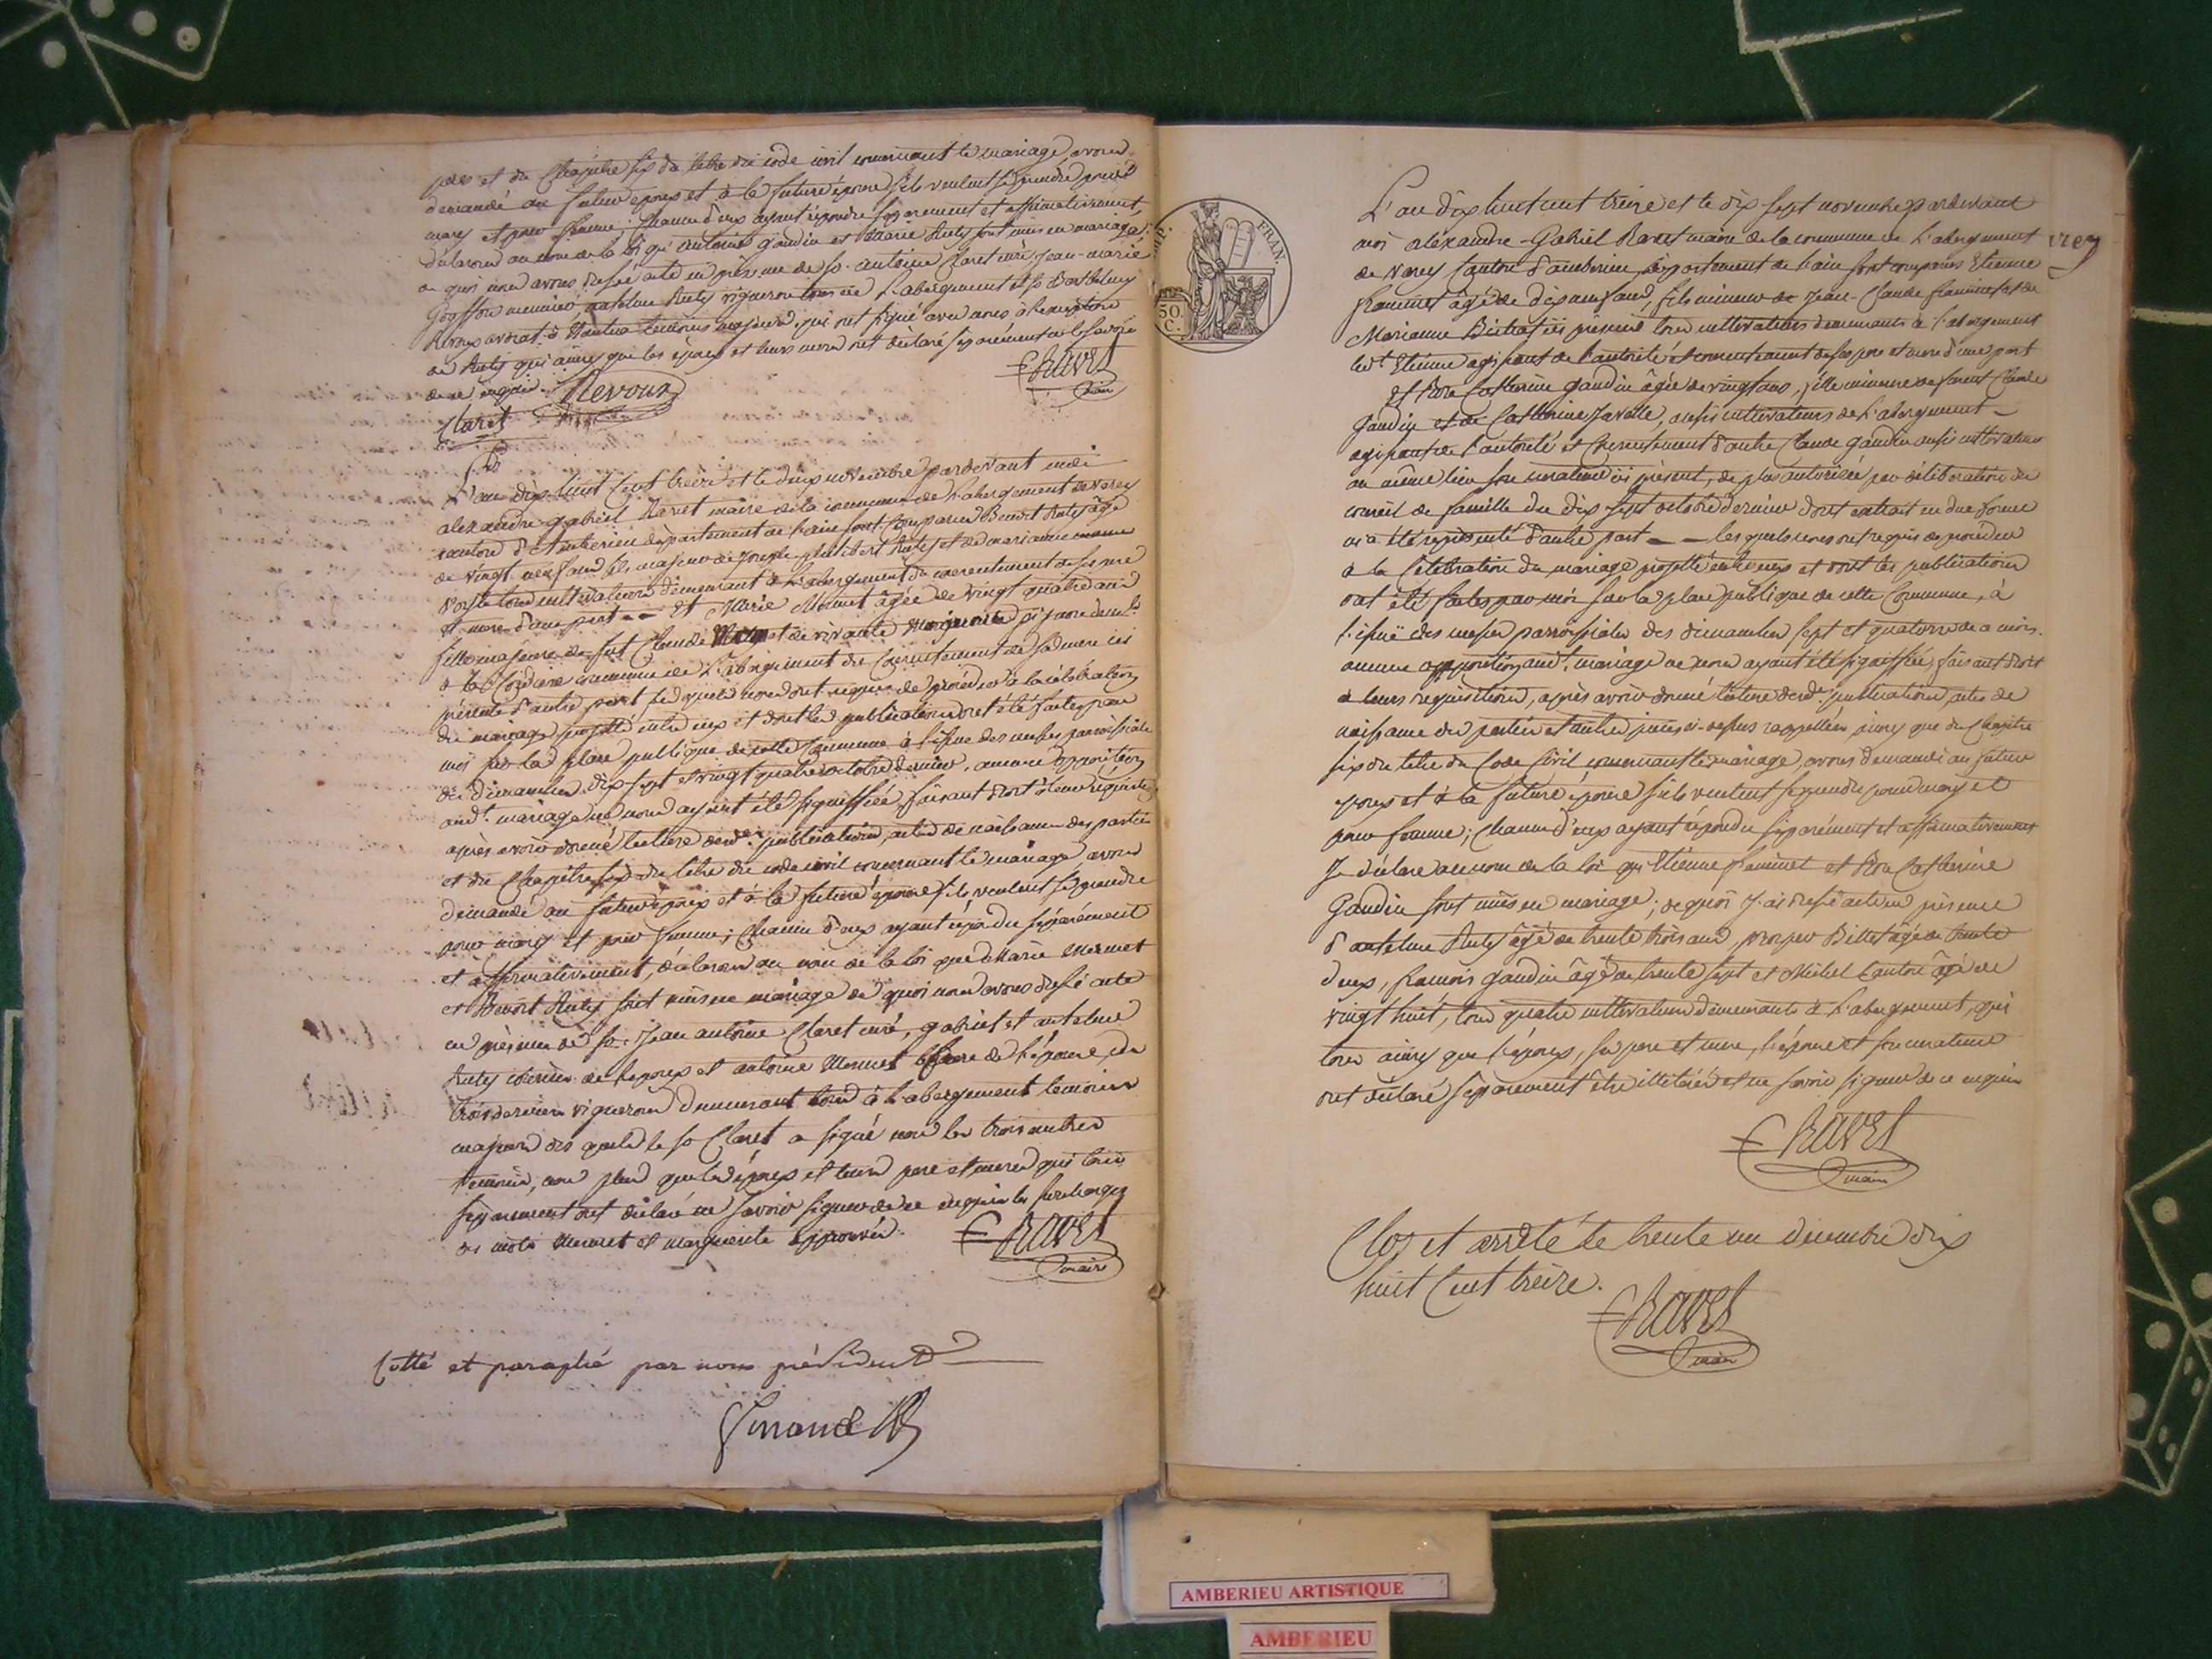 et du Chapitre six du titre du code civil concernant le mariage, avons
demandé au futur epoux et à la future épouse s'ils veulent se prendre pour
mary et pour femme; chacun d'eux ayant répondu séparément et affirmativement,
déclarons au nom de la loi qu'Antoine gaudin et Marie Autly sont unis en mariage
de quoi nous avons dressé acte en présence de sr. antoine Claret curé, Jean-marie
avocat à Nantua témoins majeurs, qui ont signé avec nous à l'exception
de qui ainsy que les époux et leurs meres ont déclaré séparément ne le savoir
de ce enquis. Revoux
Claret
Ravet
maire
L'an dix huit Cent treize et le deux novembre pardevant moi
alexandre gabriel Ravet maire de la commune de L'abergement de varey
canton d'Amberieu département de l'ain sont comparus Benoit Autly âgé
de vingt neuf ans fils majeur de Joseph philibert Autly et de marianne
tous cultivateurs demeurant à L'abergement du consentement de ses pere
et mere d'une part — Et Marie Mermet âgée de vingt quatre ans
fille majeure de fut Claude Mermet et de vivante marguerite
commune de L'abergement du consentement de sa mere ici
présente d'autre part lesquels nous ont requis de procéder à la célébration
du mariage projetté entre eux et dont les publications ont été faites par
moi sur la place publique de cette Commune à l'issue des messes paroissiale
des dimanches dix sept et vingt quatre octobre dernier. aucune opposition
audt. mariage ne nous ayant été signiffiée, faisant droit à leur réquisitn
après avoir donné lecture desdes publications, actes de naissance des parties
et du Chapitre six du titre du code civil concernant le mariage avons
demandé au futur époux et à la future épouse s'ils veulent se prendre
pour mary et pour femme; Chacun d'eux ayant répondu séparément
et affirmativement, déclarons au nom de la loi que Marie Mermet
et Benoit Autly sont unis en mariage de quoi nous avons dressé acte
en présence de sr. Jean antoine Claret curé, gabriel et antelme
Autly de l'epoux et antoine Mermet frere de l'épouse, les
trois derniers vignerons demeurant tous à L'abergement temoins
majeurs des quels le sr Claret a signé non les trois autres
témoins, non plus que les époux et leurs pere et meres qui tous
séparément ont déclaré ne savoir signer de ce enquis les surcharges
des mots Mermet et marguerite approuvés.
Ravet
maire
Cotté et paraphé par nous président
L'an dix huit cent treize et le dix sept novembre pardevant
moi alexandre-Gabriel Ravet maire de la commune de L'abergement
de varey canton d'amberieu département de l'ain sont comparus Etienne
frammet âgé de dix neuf ans, fils mineur de Jean-Claude frammet et de
Marianne ici présens tous cultivateurs demeurants à l'abergement
led.t Etienne agissant de l'autorité et consentement de ses pere et mere d'une part
Et Rose Catherine gaudin âgée de vingt ans, fille mineure de Claude
Gaudin et de Catherine Javelle, aussi cultivateurs de L'abergement —
agissant de l'autorité et Consentement d'autre Claude gaudin aussi cultivateur
au même lieu son curateur ici présent, de plus autorisée par délibération du
conseil de famille du dix sept octobre dernier dont extrait en due forme
m'a été représenté d'autre part — — lesquels nous ont requis de procéder
à la Célébration du mariage projetté entre eux et dont les publications
ont été faites par moi sur la place publique de cette Commune, à
l'issuë des messes parroissiales des dimanches sept et quatorze de ce mois.
aucune opposition audt. mariage ne nous ayant été signiffiée, faisant droit
à leurs requisitions, après avoir donné lecture desdes publications, actes de
naissance des parties et autres pieces ci-dessus rappellées, ainsy que du Chapitre
six du titre du Code Civil concernant le mariage, avons demandé au futur
epoux et à la future épouse s'ils veulent se prendre pour mary et
pour femme; Chacun d'eux ayant répondu séparément et affirmativement
Je déclare au nom de la loi que Etienne frammet et Rose Catherine
Gaudin sont unis en mariage; de quoi J'ai dressé acte en présence
d'antelme Autly âgé de trente trois ans, prosper Billet âgé de trente
deux, françois gaudin âgé de trente sept et Michel Cantor âgé de
vingt huit, tous quatre cultivateurs demeurants à L'abergement, qui
tous ainsy que l'époux, ses pere et mere, l'épouse et son curateur
ont déclaré séparément être illitérés et ne savoir signer de ce enquis
Ravet
maire
Clos et arrêté le trente un decembre dix
huit Cent treize.
Ravet
maire
FRAN.
50.
C.
AMBERIEU ARTISTIQUE
AMBERIEU